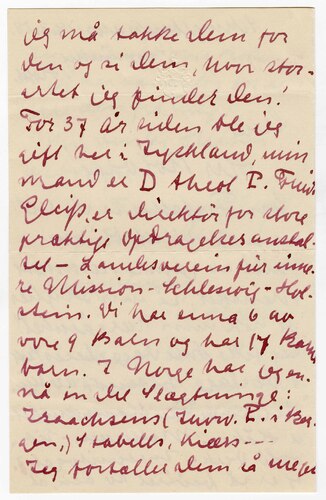 jeg må takke Dem for
den og si Dem, hvor stor-
artet jeg finder den!
For 37 år siden ble jeg
gift her i Tyskland, min
mand er D theol P.
er direktör for store
præktige Opdragelsesanstal-
ter – Landesverein für inne-
re Mission – Schleswig-Hol-
stein. Vi har enna 6 av
vore 9 Barn og har 17 Barne
barn. I Norge har jeg en-
nå en del Slægtninge:
Isaachsens ( P. i Ber-
gen,) Stabells, Kiærs ---
Jeg fortæller Dem så meget